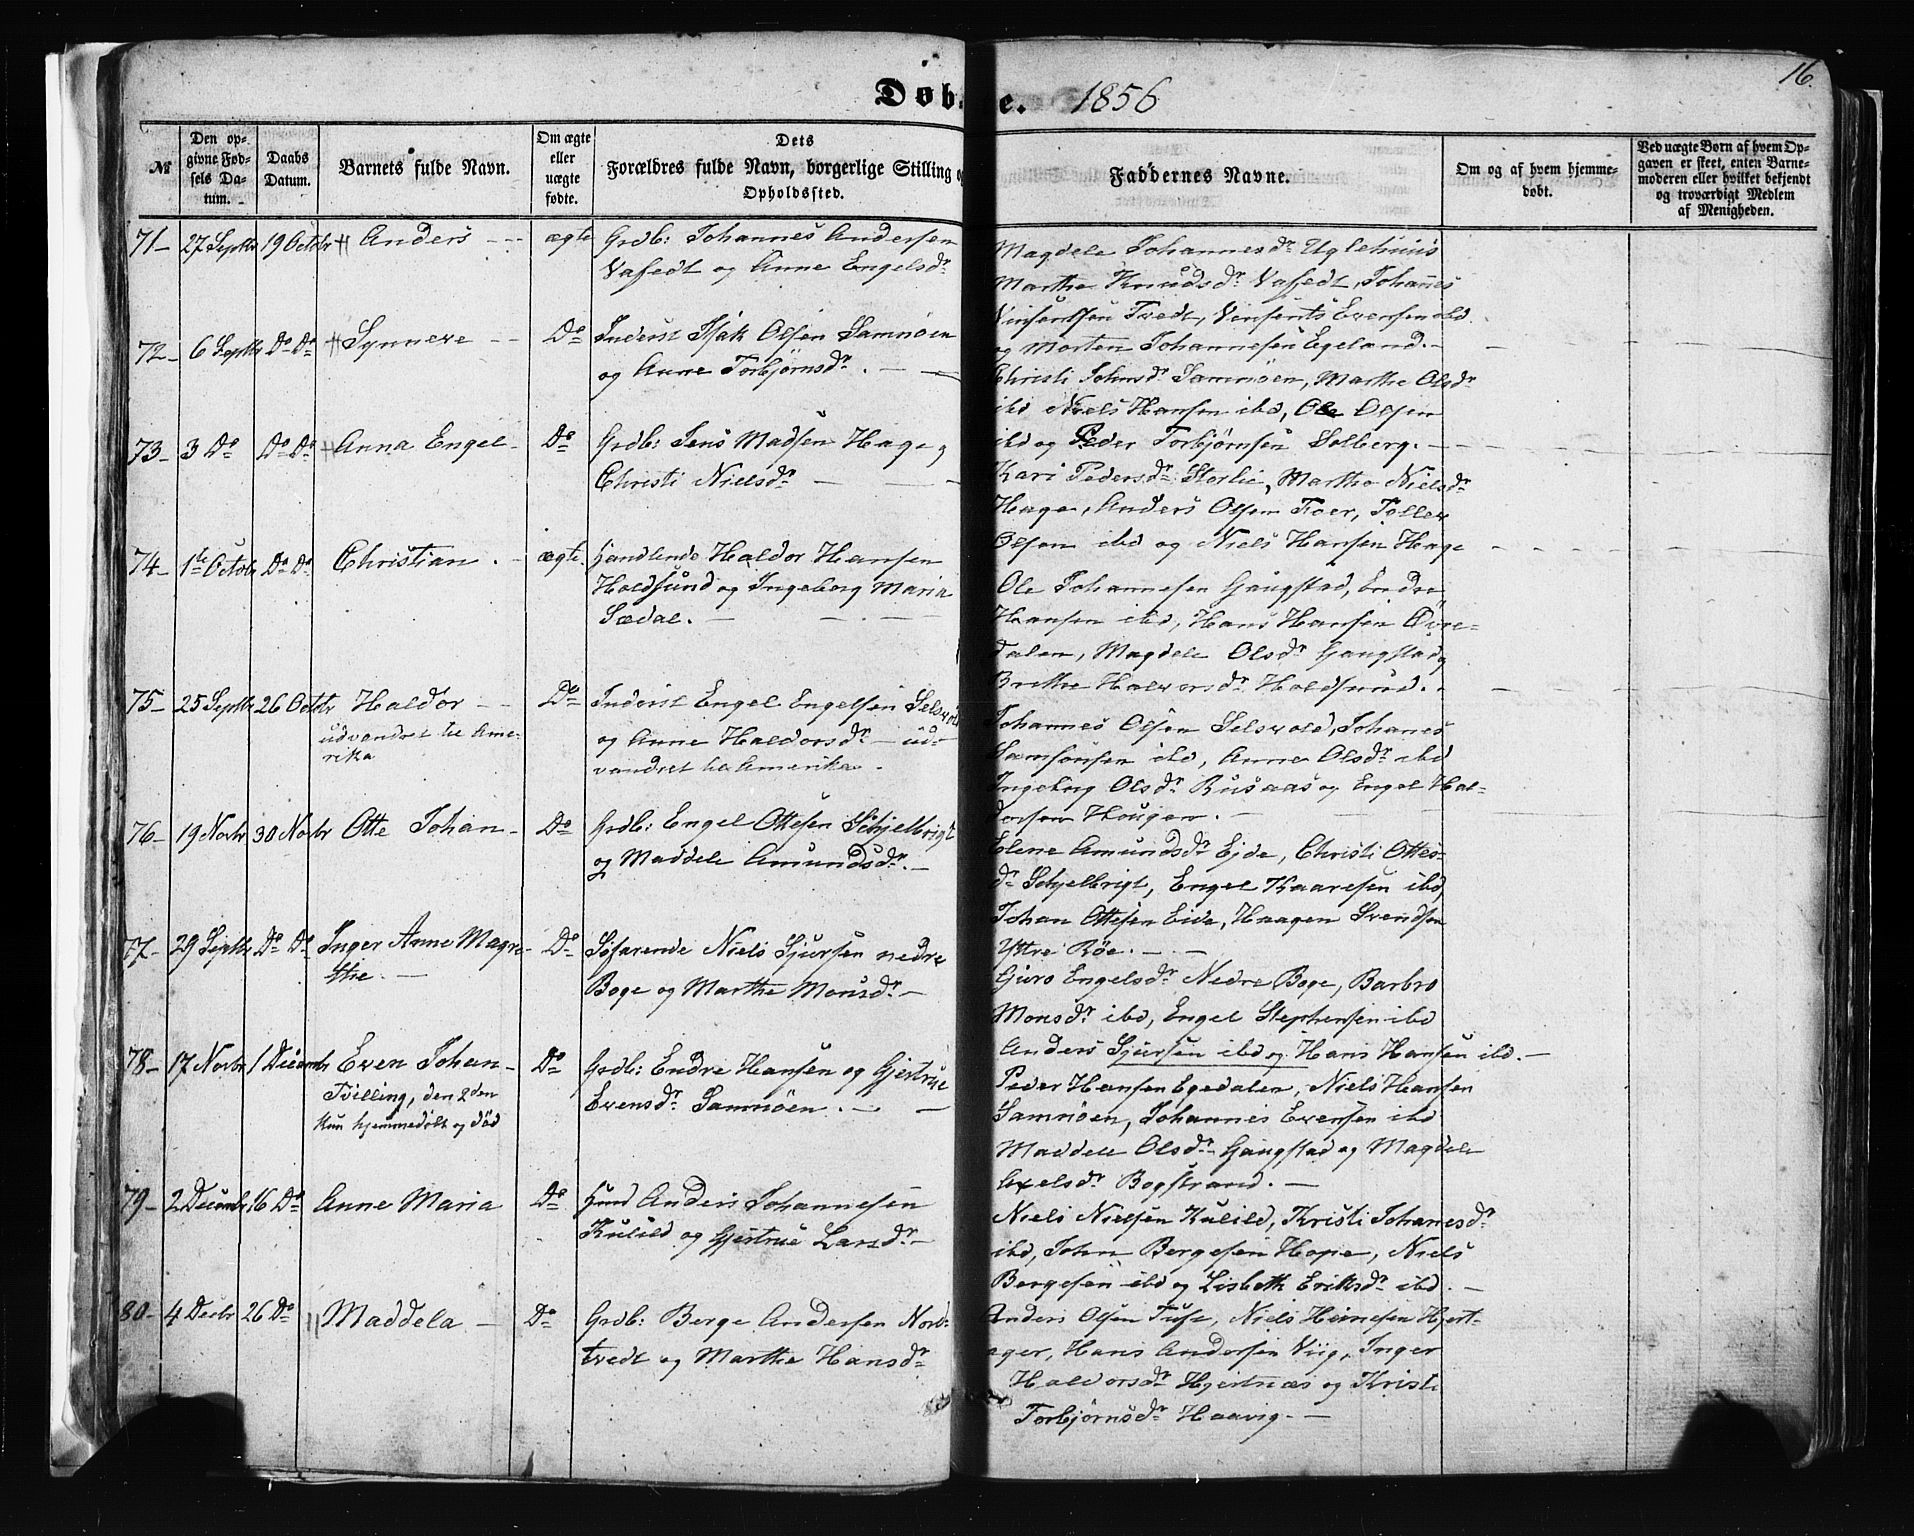 16.
Døbte. 1856
№
Den op-
givne Fød-
sels Da-
tum.
Daabs
Datum.
Barnets fulde Navn.
Om ægte
eller
uægte
fødte.
Dets
Forældres fulde Navn, borgerlige Stilling og
Opholdssted.
Faddernes Navne.
Om og af hvem hjemme-
døbt.
Ved uægte Børn af hvem Op-
gaven er skeet, enten Barne-
moderen eller hvilket bekjendt
og troværdigt Medlem
af Menigheden.
71 - 27 Septbr 19 Octobr Anders - - ægte Grdb: Johannes Andersen
Vasedt og Anne Engelsdr
Magdele Johannesdr Uglehuus
Marthe Knudsdr Vasedt, Johannes
Vinsentsen Tvedt, Vinsents Evensen ibd
og Morten Johannesen Egeland. -
72 - 6 Septbr Do Do Synneve - - Do Inderst Isak Olsen Samnöen
og Anne Torbjørnsdr. -
Christi Johnsdr Samnöen, Marthe Olsdr
ibd Niels Hansen ibd, Ole Olsen
ibd og Peder Torbjørnsen Solberg. -
73 - 3 Do Do Do Anna Engel - Do Grdb: Jens Madsen Hage og
Christi Nielsdr -
Kari Pedersdr Storlie, Martha Nielsdr
Hage, Anders Olsen Foer, Tollev
Olsen ibd og Niels Hansen Hage
74 - 1te Octobr Do Do Christian. - ægte. Handlende Haldor Hansen
Holdsund og Ingeborg Maria
Sædal. -
Ole Johannesen Gangstad, Endre
Hansen ibd, Hans Hansen Øvre-
dalen, Magdele Olsdr Gangstad og
Brethe Halvorsdr Holdsund. -
75 - 25 Septbr 26 Octobr Haldor - - Do Inderst Engel Engelsen Selsvold
udvandret til Ame-
rika
og Anne Haldorsdr - ud-
vandret til Amerika.
Johannes Olsen Selsvold, Johanes
Samsonsen ibd, Anne Olsdr ibd
Ingebrg Olsdr Busaas og Engel Hal-
dorsen Hougen. -
76 - 19 Novbr 30 Novbr Otte Johan - Do Grdb: Engel Ottesen Schjelbrigt
og Maddele Amundsdr. -
Elene Amundsdr Ejde, Christi Ottes-
dr Schjelbrigt, Engel Kaaresen ibd,
Johan Ottesen Eide, Haagen Svendsen
Yttre Röe. -
77 - 29 Septbr Do Do Inger Anne Magre-
the. - Do Søfarende Niels Sjursen nedre
Boge og Marthe Monsdr. -
Guro Engelsdr Nedre Boge, Barbro
Monsdr ibd, Engel Stephensen ibd
Anders Sjursen ibd og Hans Hansen ibd. -
78 - 17 Novbr 1 Decembr Even Johan - Do Grdb: Endre Hansen og Gjertrue
Tvilling, den 2den
kun hjemmedöbt og död
Evensdr Samnöen. -
Peder Hansen Egedalen, Niels Hansen
Samnöen, Johannes Evensen ibd
Maddele Olsdr Gangstad og Magdele
Axelsdr Bogstrand. -
79 - 2 Decembr 16 Do Anne Maria Do Huusmd Anders Johannesen
Kulild og Gjertrue Larsdr -
Niels Nielsen Kulild, Kristi Johanesdr
ibd, John Bergesen Hope, Niels
Bergesen ibd og Lisbeth Eriksdr ibd. -
80 - 4 Decbr 26 Do Maddela - Do Grdb: Berge Andersen Nord-
tvedt og Marthe Hansdr
Anders Olsen Tuse, Niels Heinesen Hjert-
ager, Hans Andersen Viig, Inger
Haldorsdr Hjertnæs og Kristi
Torbjørnsdr Haavig. -